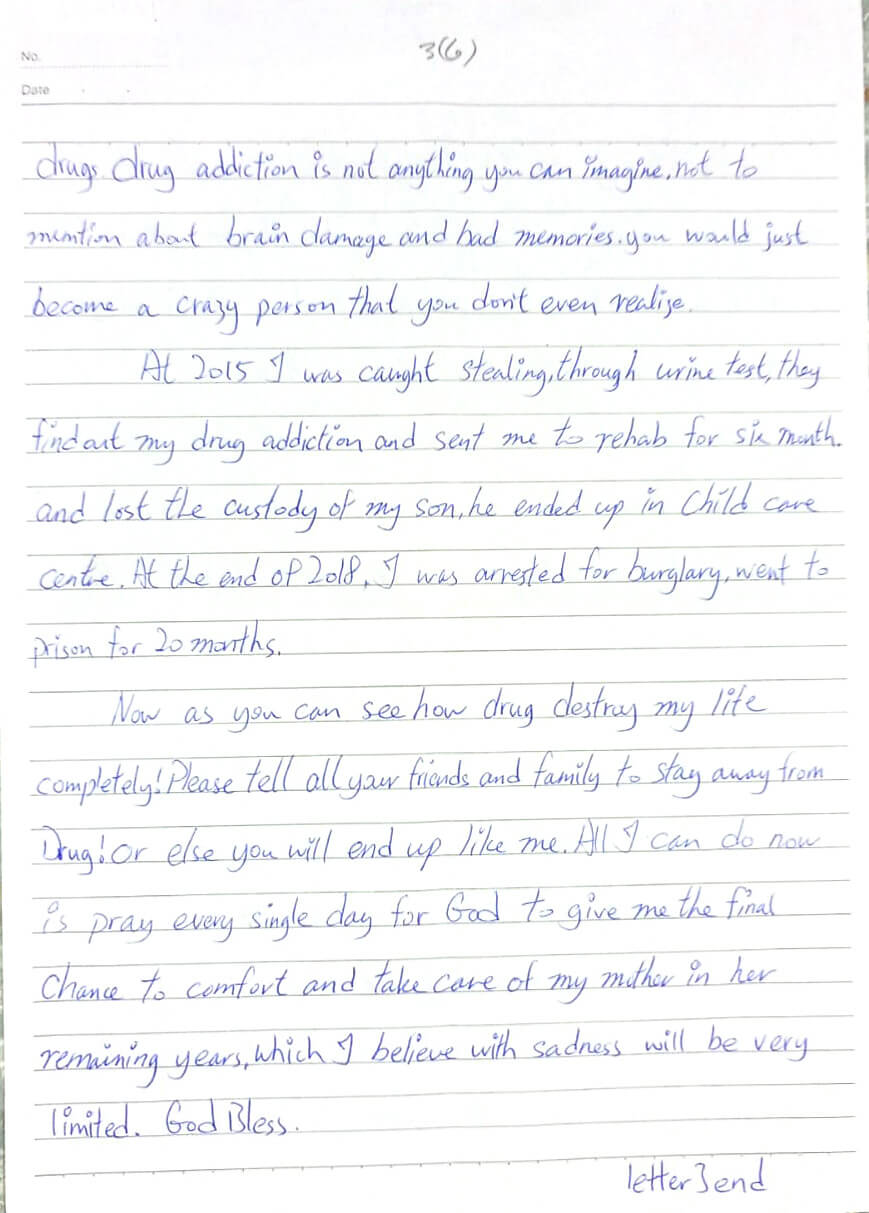 3(6)
No.
Date
drugs. drug addiction is not anything you can imagine, not to
mention about brain damage and bad memories. you would just
become a crazy person that you don't even realize.
At 2015 I was caught stealing, through urine test, they
find out my drug addiction and sent me to rehab for six month.
and lost the custody of my son, he ended up in Child care
centre. At the end of 2018, I was arrested for burglary, went to
prison for 20 months.
Now as you can see how drug destroy my life
completely! Please tell all your friends and family to stay away from
Drug! Or else you will end up like me. All I can do now
is pray every single day for God to give me the final
Chance to comfort and take care of my mother in her
remaining years, which I believe with sadness will be very
limited. God Bless.
letter 3 end